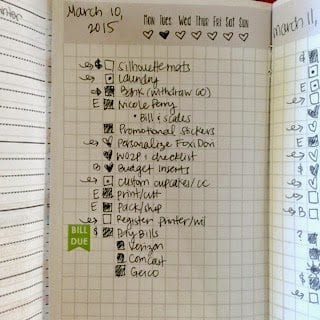 winter
March 10,
2015
Mon Tues Wed Thur Fri Sat Sun
$ Silhouette mats
Laundry
Bank (withdraw 60)
E Nicole Perry
• Bill & scales
Promotional stickers
Personalize Foxi Dori
W02P & checklist
Budget Inserts
Custom cupcakes/CC
E Print/cut
E Pack/ship
Register printer/
BILL
DUE
$ Pay Bills
Verizon
Comcast
Geico
March 11,
?
B
$